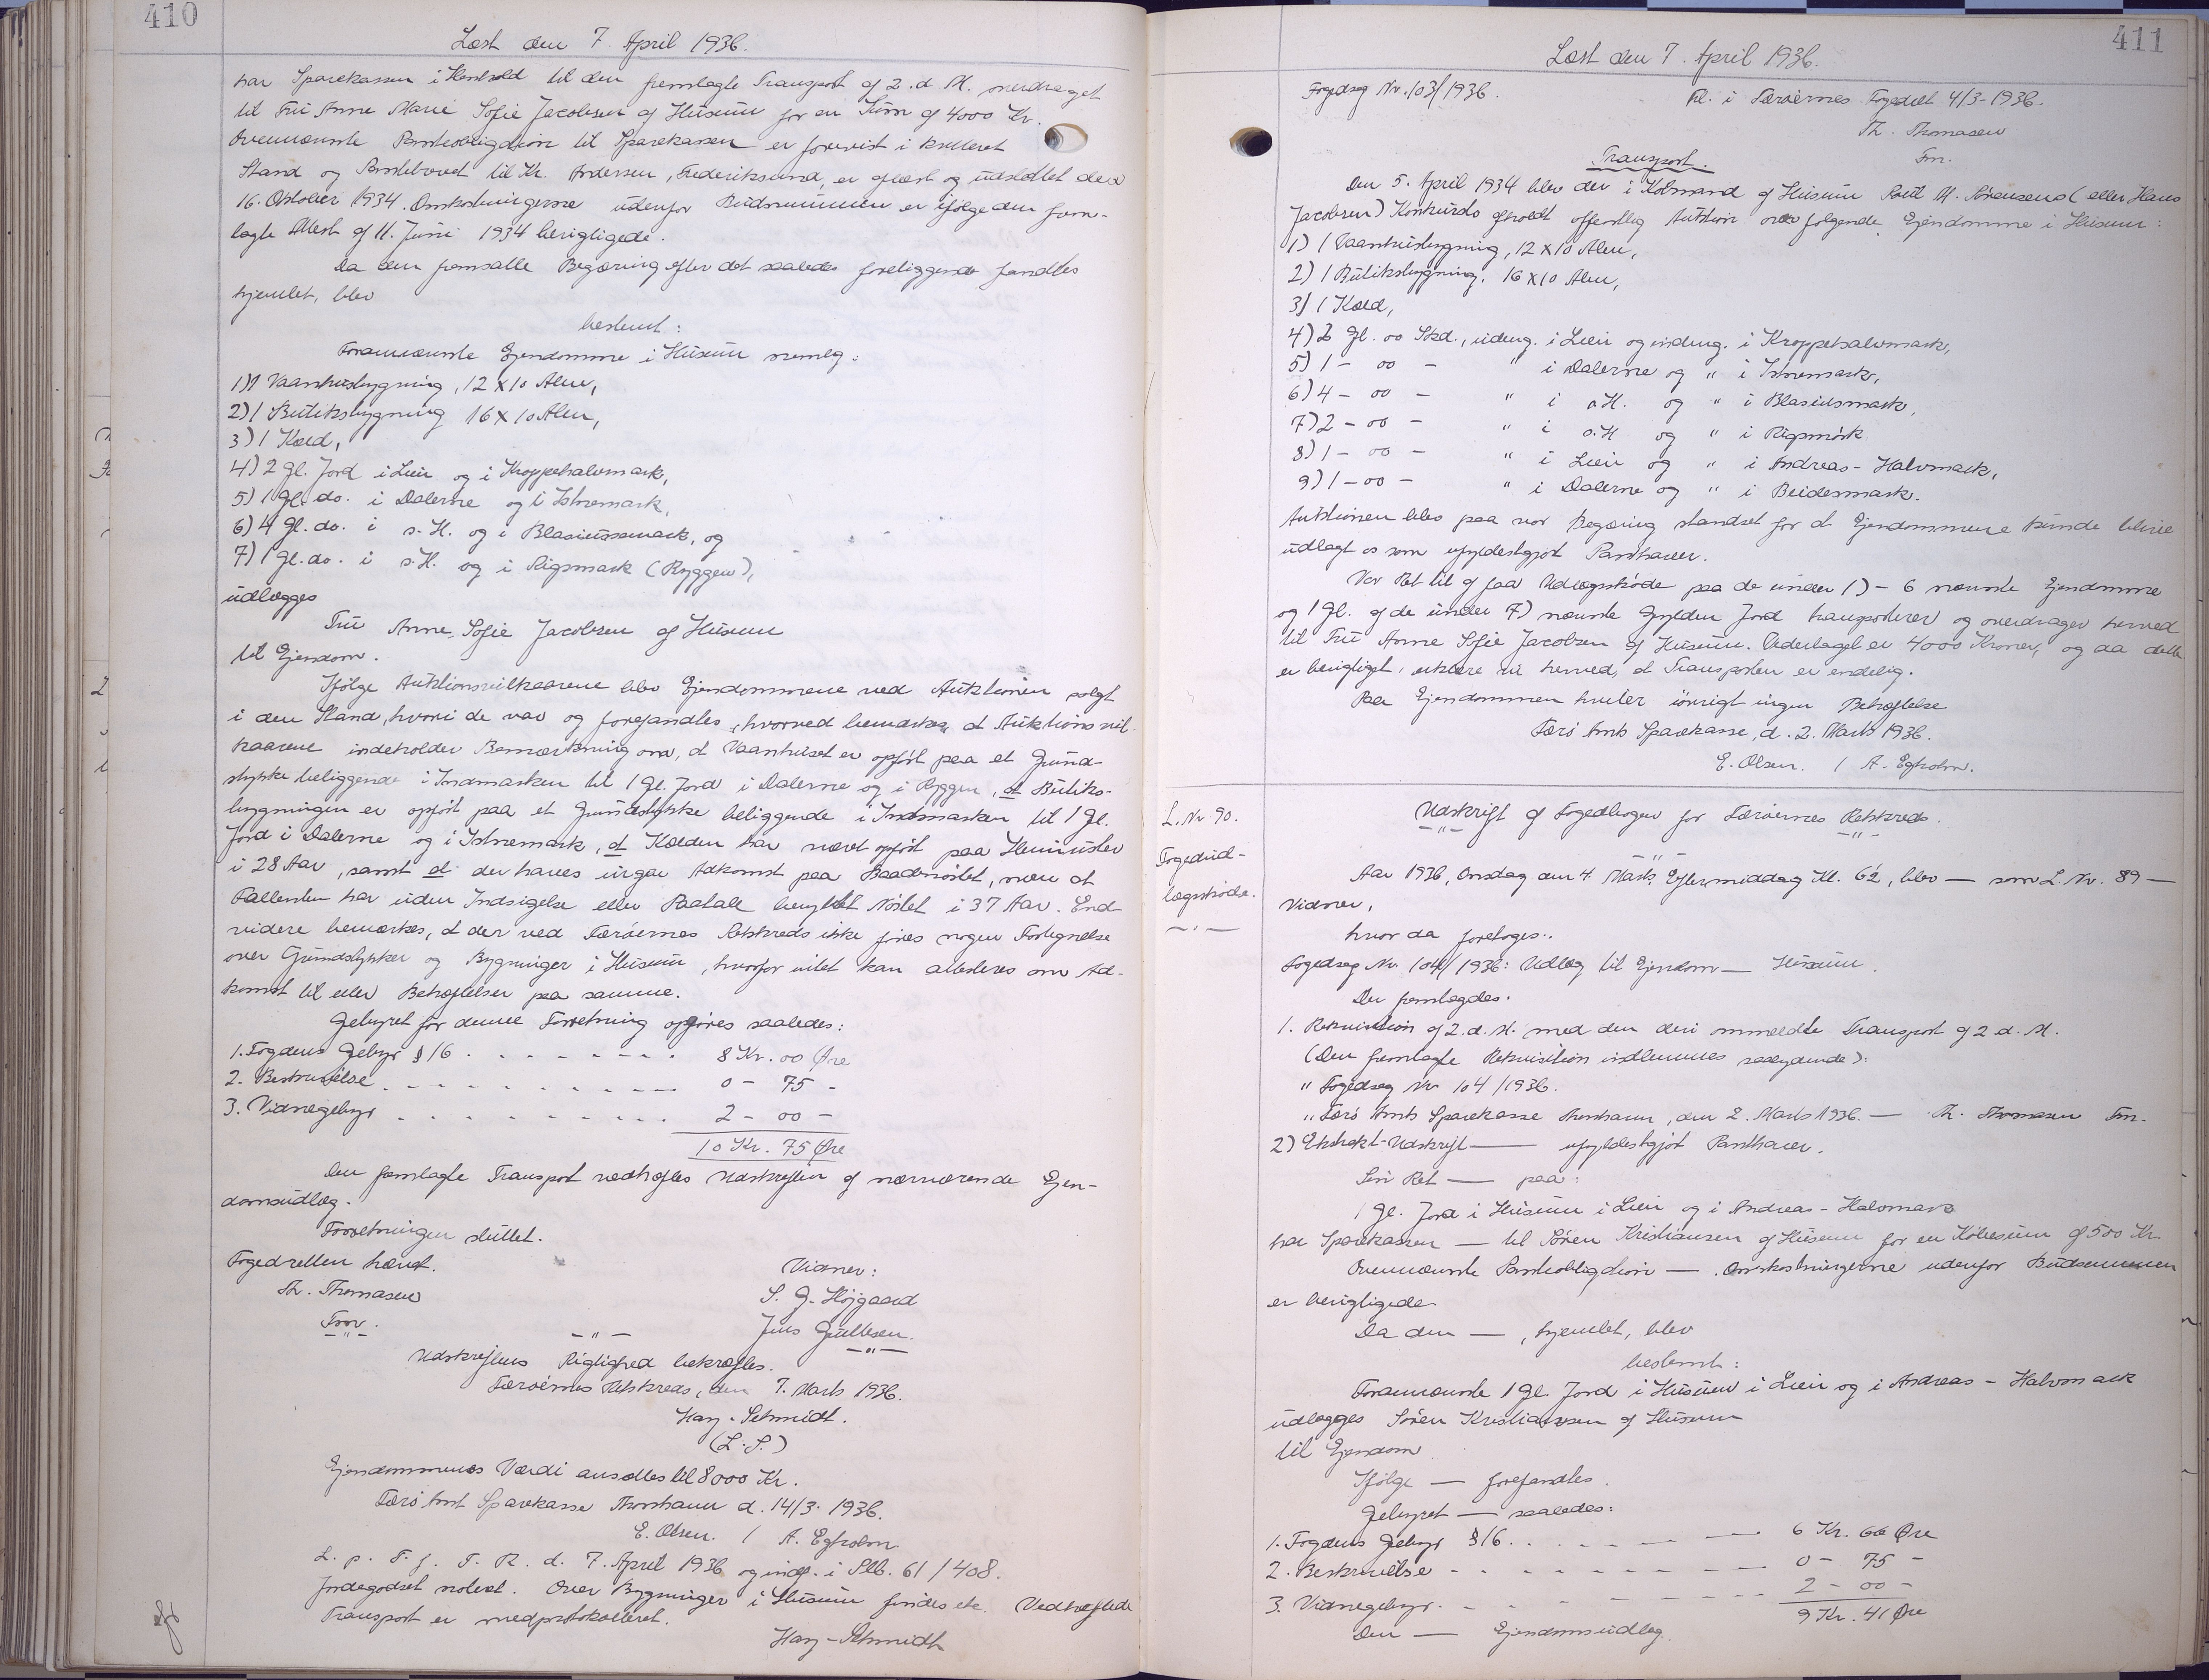 410
Læst den 7. April 1936.
har Sparekassen i Henhold til den fremlagte Transport af 2. d. M. overdraget
til Fru Anne Marie Sofie Jacobsen af Husum for en Sum af 4000 Kr.
Ovennævnte Panteobligation til Sparekassen er forevist i kvitteret
Stand og Pantebrevet til Kr. Andersen, Frederikssund, er aflæst og udslettet den
16. Oktober 1934. Omkostningerne udenfor Budsummen er ifølge den frem-
lagte Attest af 11. Juni 1934 berigtigede.
Da den fremsatte Begæring efter det saaledes foreliggende fandtes
hjemlet, blev
bestemt:
Forannævnte Ejendomme i Husum nemlig:
1) 1 Vaanhusbygning, 12 x 10 Alen,
2) 1 Butiksbygning 16 x 10 Alen,
3) 1 Kæld,
4) 2 Gl. Jord i Lien og i Kroppehalvmark,
5) 1 Gl. do. i Dalerne og i Ishnemark,
6) 4 Gl. do. i s. H. og i Blasiusmark, og
7) 1 Gl. do. i s. H. og i Rigsmark (Ryggen),
udlægges
Fru Anne Sofie Jacobsen af Husum
til Ejendom.
Ifølge Auktionsvilkaarene blev Ejendommene ved Auktionen solgt
i den Stand, hvori de var og forefandtes, hvorved bemærkes, at Auktionsvil-
kaarene indeholder Bemærkning om, at Vaanhuset er opført paa et Grund-
stykke beliggende i Indmarken til 1 Gl. Jord i Dalerne og i Ryggen, at Butiks-
bygningen er opført paa et Grundstykke beliggende i Indmarken til 1 Gl.
Jord i Dalerne og i Ishnemark, at Kælden har været opført paa
i 28 Aar, samt at der haves ingen Adkomst paa Baadnøstet, men at
Fallenten har uden Indsigelse eller Paatale benyttet Nøstet i 37 Aar. End-
videre bemærkes, at der ved Færøernes Retskreds ikke føres nogen Fortegnelse
over Grundstykker og Bygninger i Husum, hvorfor intet kan attesteres om Ad-
komst til eller Behæftelser paa samme.
Gebyret for denne Forretning opgøres saaledes:
1. Fogdens Gebyr § 16 . . . . . . . 8 Kr. 00 Øre
2. Beskrivelse . - - - - - - - - - 0 - 75 -
3. Vidnegebyr . . . . . . . . . . 2 - 00 -
10 Kr. 75 Øre
Den fremlagte Transport vedhæftes Udskriften af nærværende Ejen-
domsudlæg.
Forretningen sluttet.
Fogedretten hævet.
Vidner:
Th. Thomasen
S. J. Højgaard
Fm.
Jens Gullesen.
Udskriftens Rigtighed bekræftes.
Færøernes Retskreds, den 7. Marts 1936.
Hary-Schmidt.
(L. S.)
Ejendommenes Værdi ansættes til 8000 Kr.
Færø Amt Sparekasse Thorshavn d. 14/3. 1936.
E. Olsen. / A. Egholm
L. p. T. f. F. R. d. 7. April 1936 og indf. i Skb. 61 / 408.
Jordegodset noteret. Over Bygninger i Husum findes etc. Vedhæftede
Transport er medprotokolleret.
Hary-Schmidt
411
Læst den 7. April 1936.
Fogedsag Nr. 103/1936.
Fl. i Færøernes Fogedret 4/3-1936.
Th. Thomasen
Fm.
Transport.
Den 5. April 1934 blev der i Købmand af Husum Poul M. Sørensens (eller Hans
Jacobsen) Konkursbo afholdt offentlig Auktion over følgende Ejendomme i Husum:
1) 1 Vaanhusbygning, 12 x 10 Alen,
2) 1 Butiksbygning, 16 x 10 Alen,
3) 1 Kæld,
4) 2 Gl. 00 Skd., udeng. i Lien og indeng. i Kroppehalvmark,
5) 1 - 00 - " i Dalerne og " i Ishnemark,
6) 4 - 00 - " i s. H. og " i Blasiusmark,
7) 2 - 00 - " i s. H og " i Rigsmørk
8) 1 - 00 - " i Lien og " i Andreas-Halvmark,
9) 1 - 00 - " i Dalerne og " i Beidesmark.
Auktionen blev paa vor Begæring standset for at Ejendommene kunde blive
udlagt os som ufyldestgjort Panthaver.
Vor Ret til at faa Udlægsskøde paa de under 1) - 6 nævnte Ejendomme
og 1 Gl. af de under 7) nævnte Gylden Jord transporterer og overdrager herved
til Fru Anne Sofie Jacobsen af Husum. Vederlaget er 4000 Kroner, og da dette
er berigtiget, erklære vi herved, at Transporten er endelig.
Paa Ejendommen hviler iøvrigt ingen Behæftelse
Færø Amts Sparekasse, d. 2. Marts 1936.
E. Olsen. / A. Egholm.
L. Nr. 90.
Fogedud-
lægsskøde.
Udskrift af Fogedbogen for Færøernes Retskreds.
Aar 1936, Onsdag den 4. Marts, Eftermiddag Kl. 6½, blev — som L. Nr. 89 —
Vidner,
hvor da foretoges:
Fogedsag Nr. 104/1936: Udlæg til Ejendom — Husum.
Der fremlagdes:
1. Rekvisition af 2. d. M. med den deri ommeldte Transport af 2 d. M.
(Den fremlagte Rekvisition indlemmes saalydende):
" Fogedsag Nr. 104/1936.
" Færø Amts Sparekasse Thorshavn, den 2. Marts 1936. — Th. Thomasen Fm.
2) Ekstrakt-Udskrift — ufyldestgjort Panthaver.
Sin Ret — paa:
1 Gl. Jord i Husum i Lien og i Andreas-Halvmark
har Sparekassen — til Søren Kristiansen af Husum for en Købesum af 500 Kr.
Ovennævnte Panteobligation — Omkostningerne udenfor Budsummen
er berigtigede.
Da den —, hjemlet, blev
bestemt:
Forannævnte 1 Gl. Jord i Husum i Lien og i Andreas-Halvmark
udlægges Søren Kristiansen af Husum
til Ejendom
Ifølge — forefandtes.
Gebyret — saaledes:
1. Fogdens Gebyr § 16 . . . . — — 6 Kr. 66 Øre
2. Beskrivelse - - - - - - - - 0 - 75 -
3. Vidnegebyr. - - - - - - - 2 - 00 -
9 Kr. 41 Øre
Den — Ejendomsudlæg.